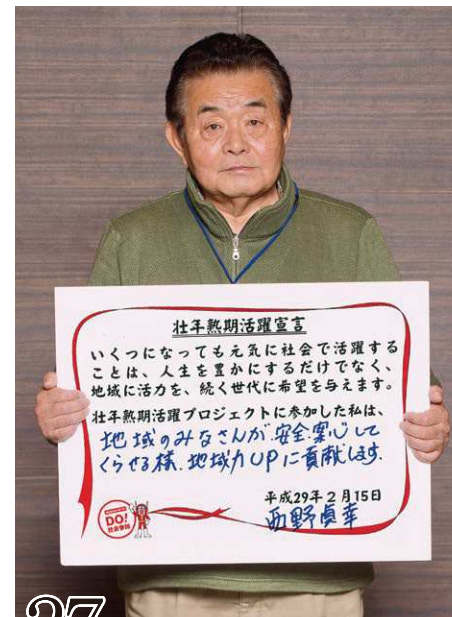 壮年熟期活躍宣言
いくつになっても元気に社会で活躍する
ことは、人生を豊かにするだけでなく、
地域に活力を、続く世代に希望を与えます。
壮年熟期活躍プロジェクトに参加した私は、
地域のみなさんが安全.安心して
くらせる様.地域力UPに貢献します.
平成29年2月15日
西野貞幸
DO!
社会参加
27